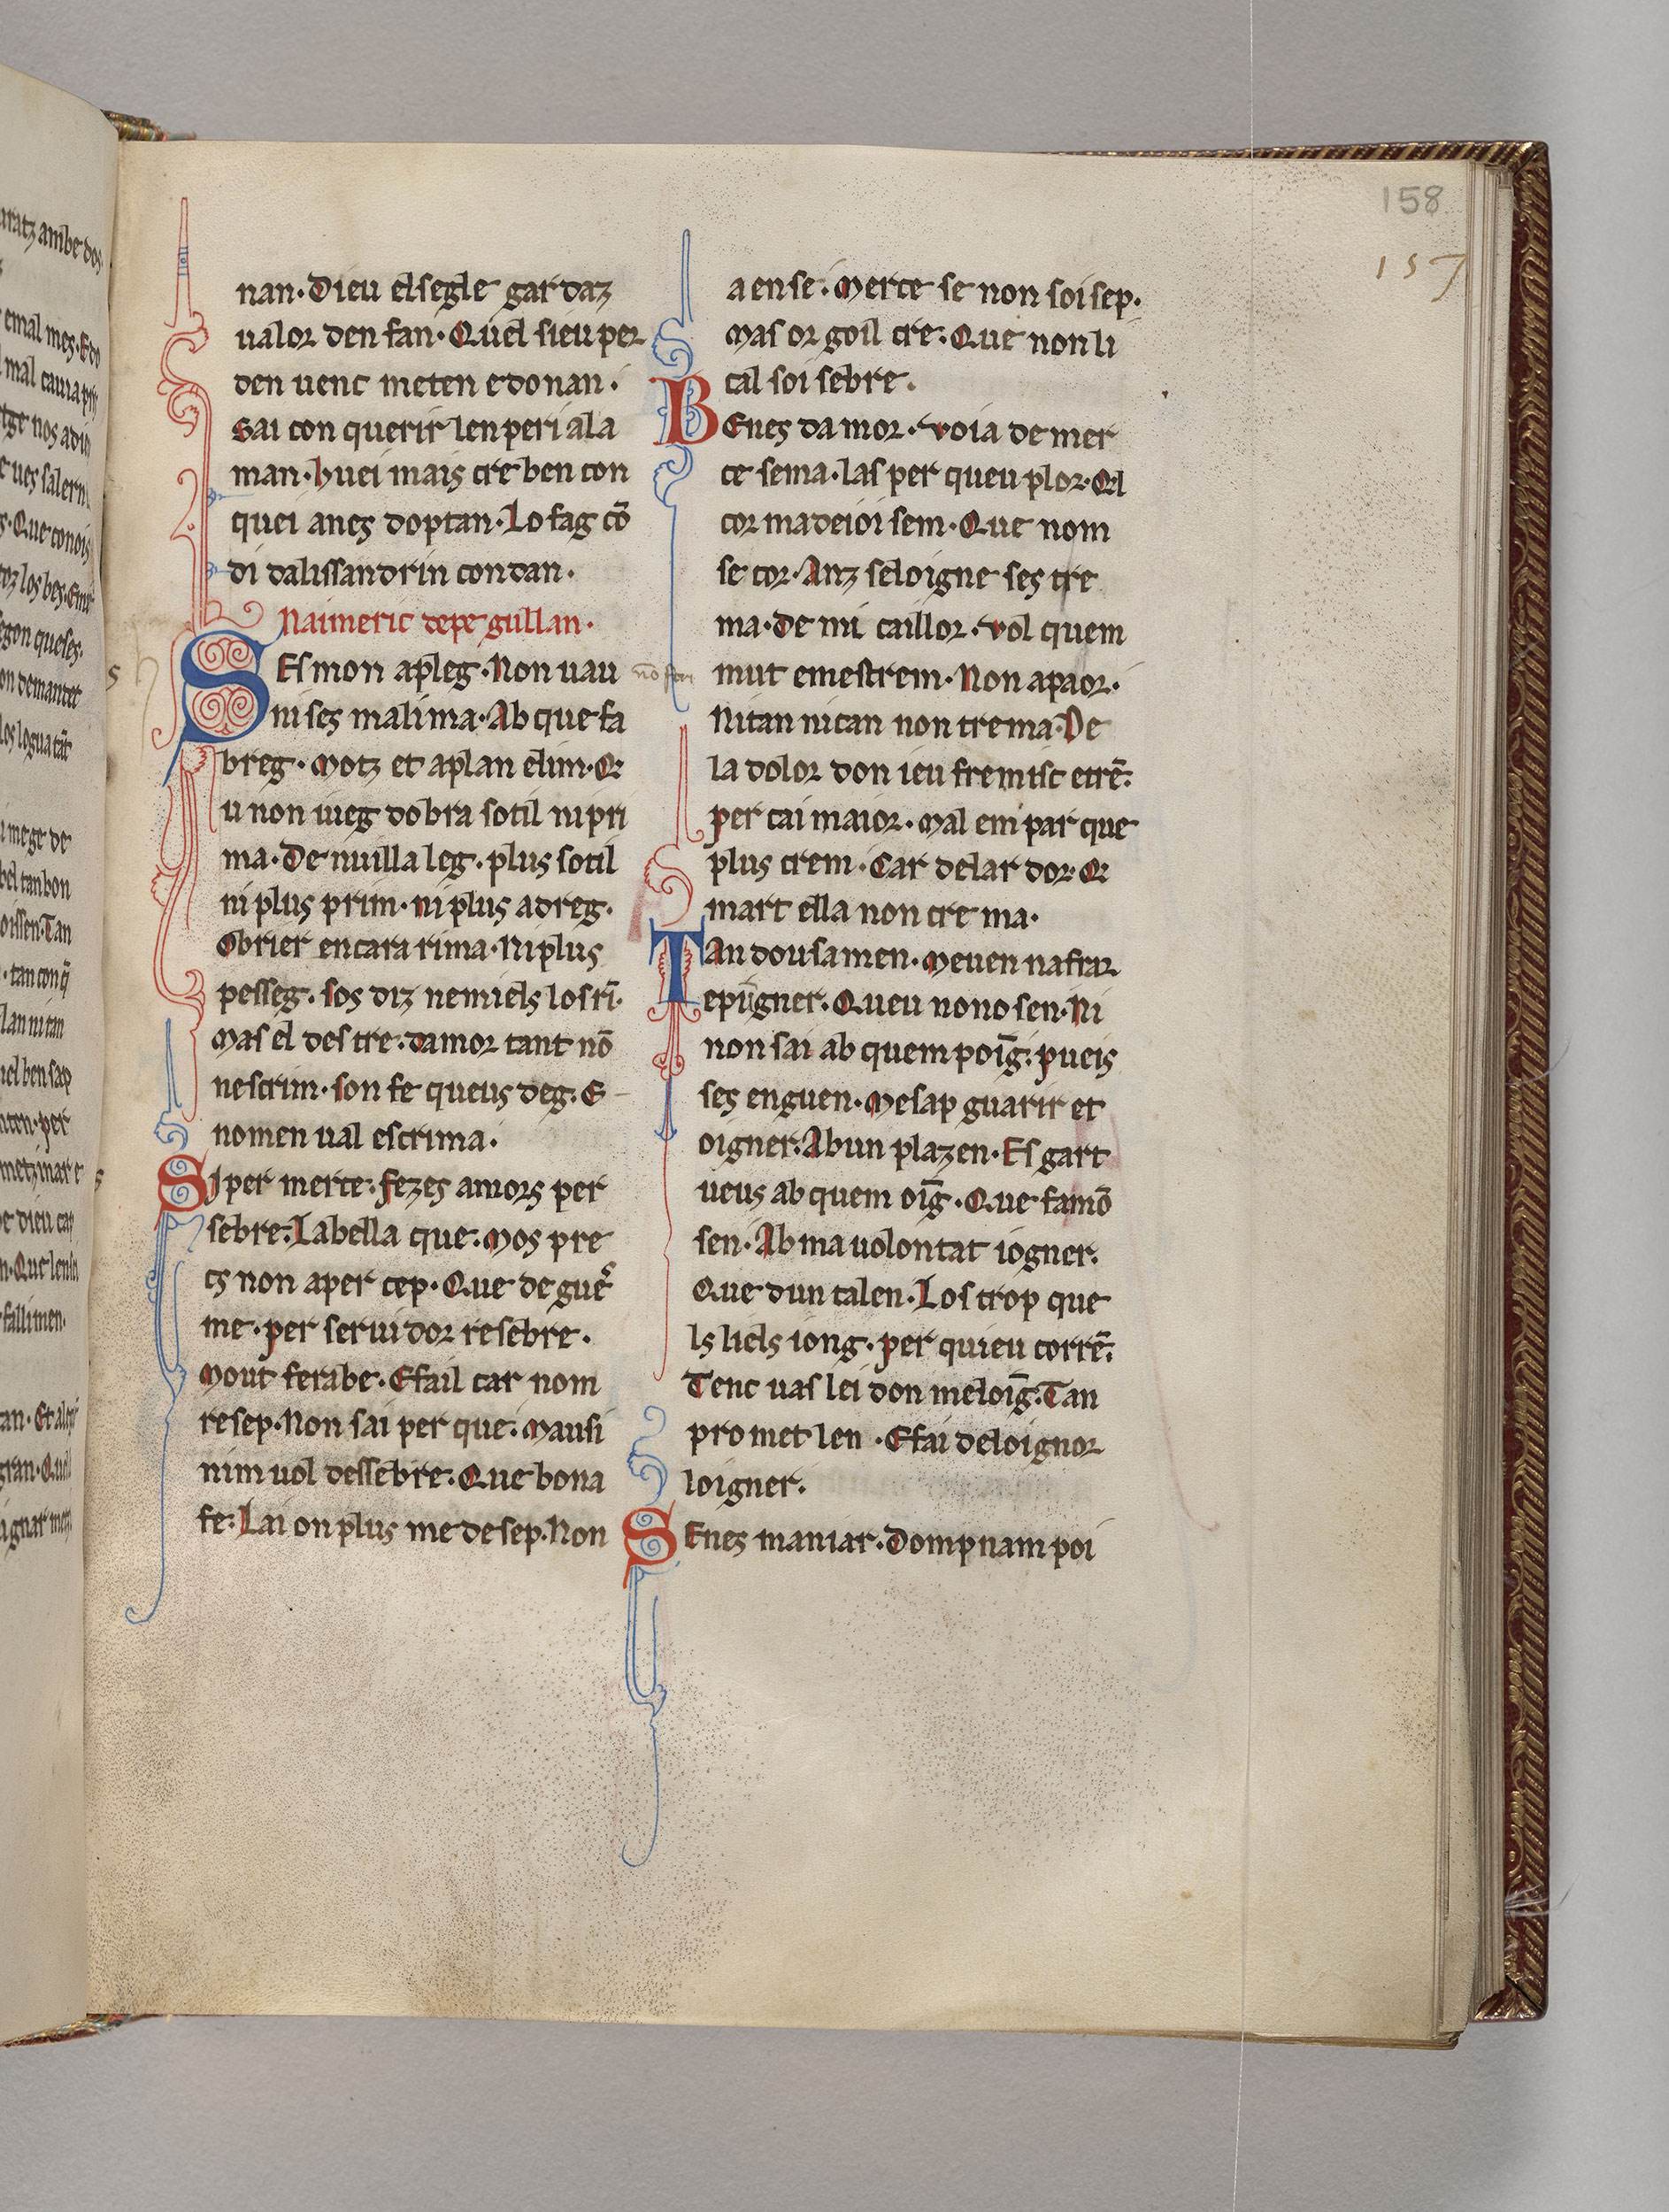 158
157
nan·Dieu elsegle gardaz
ualor den fan·Quel sieu per
den uenc meten edonan·
Sai con querir lenperi ala
man·huei mais cre ben con
quei anes doptan·Lo fag cō
di dalissandrin contan·
Naimeric depe gullan·
SEs mon apleg·Non uau
ni ses mali ma·Ab que fa
breg·Motz et aplan elim·Q
u non iueg dobra sotil ni pri
ma·De nuilla leg·plus sotil
ni plus prim·ni plus adreg·
Obrier encara rima·Niplus
pesseg·sos diz nemiels los ri·
Mas el des tre·damor tant nō
nescrim·son fe queus deg·E
nomen ual escrima·
SI per merce·fezes amors per
sebre·Labella que·Mos pre
cs non aper cep·Que de gue
me·per serui dor resebre·
Mout ferabe·Efail car nom
resep·Non sai per que·Mausi
nim uol dessebre·Que bona
fe·Lai on plus me desep·Non
a ense·Merce se non soi sep·
Mas or goil cre·Que non li
cal soi sebre·
BEnes da mor·voia de mer
ce sema·las per queu plor·Q̄l
cor madeioi sem·Que nom
se cor·Anz seloigne ses cre
ma·De mi caillor·vol quem
mut emestrem·Non apaor·
Nitan nican non trema·De
la dolor don ieu fremisc etrē·
per cai maior·Mal em par que
plus crem·Car delar dor·Q
mart ella non cre ma·
TAn dousamen·Meuen nafrar
epūgner·Queu nono sen·Ni
non sai ab quem poīg·pueis
ses enguen·Mesap guarir et
oigner·Abun plazen·Es gart
ueus ab quem oīg·Que famō
sen·Ab ma uolontat iogner·
Que dun talen·Los trop que
ls liels iong·per quieu corrē·
Tenc uas lei don meloīg·Tan
promet len·Efai deloignor
loigner·
SEnes maniar·Dompnam poi